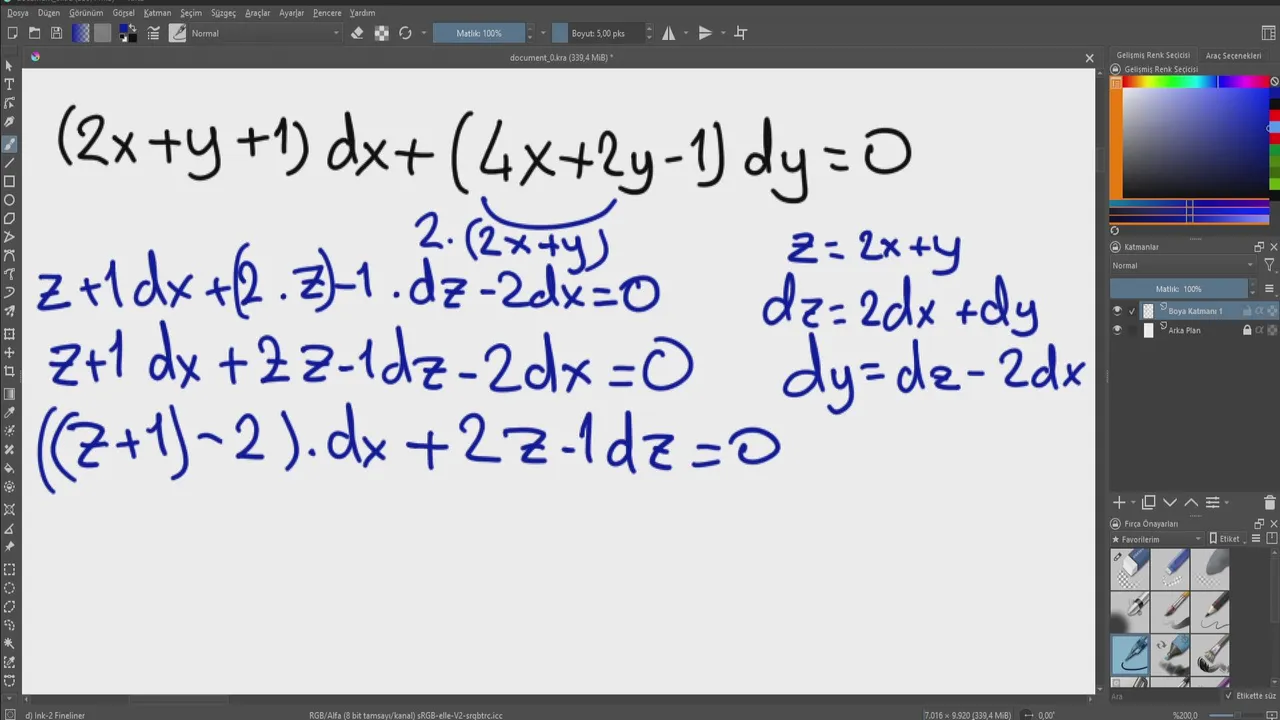 Dosya Düzen Görünüm Görsel Katman Seçim Süzgeç Araçlar Ayarlar Pencere Yardım
Normal Matlık: 100% Boyut: 5,00 pks
document_0.kra (339,4 MiB) *
Gelişmiş Renk Seçicisi Araç Seçenekleri
Gelişmiş Renk Seçicisi
(2x+y+1) dx+(4x+2y-1) dy=0
2.(2x+y)
z+1dx+(2.z)-1.dz-2dx=0
z+1 dx+2z-1dz-2dx=0
((z+1)-2).dx+2z-1dz=0
z=2x+y
dz=2dx+dy
dy=dz-2dx
Katmanlar
Normal
Matlık: 100%
Boya Katmanı 1
Arka Plan
Fırça Önayarları
Favorilerim Etiket
Ara Etikette süz
d) Ink-2 Fineliner RGB/Alfa (8 bit tamsayı/kanal) sRGB-elle-V2-srgbtrc.icc 7.016 × 9.920 (339,4 MiB) 0,00° %200,0